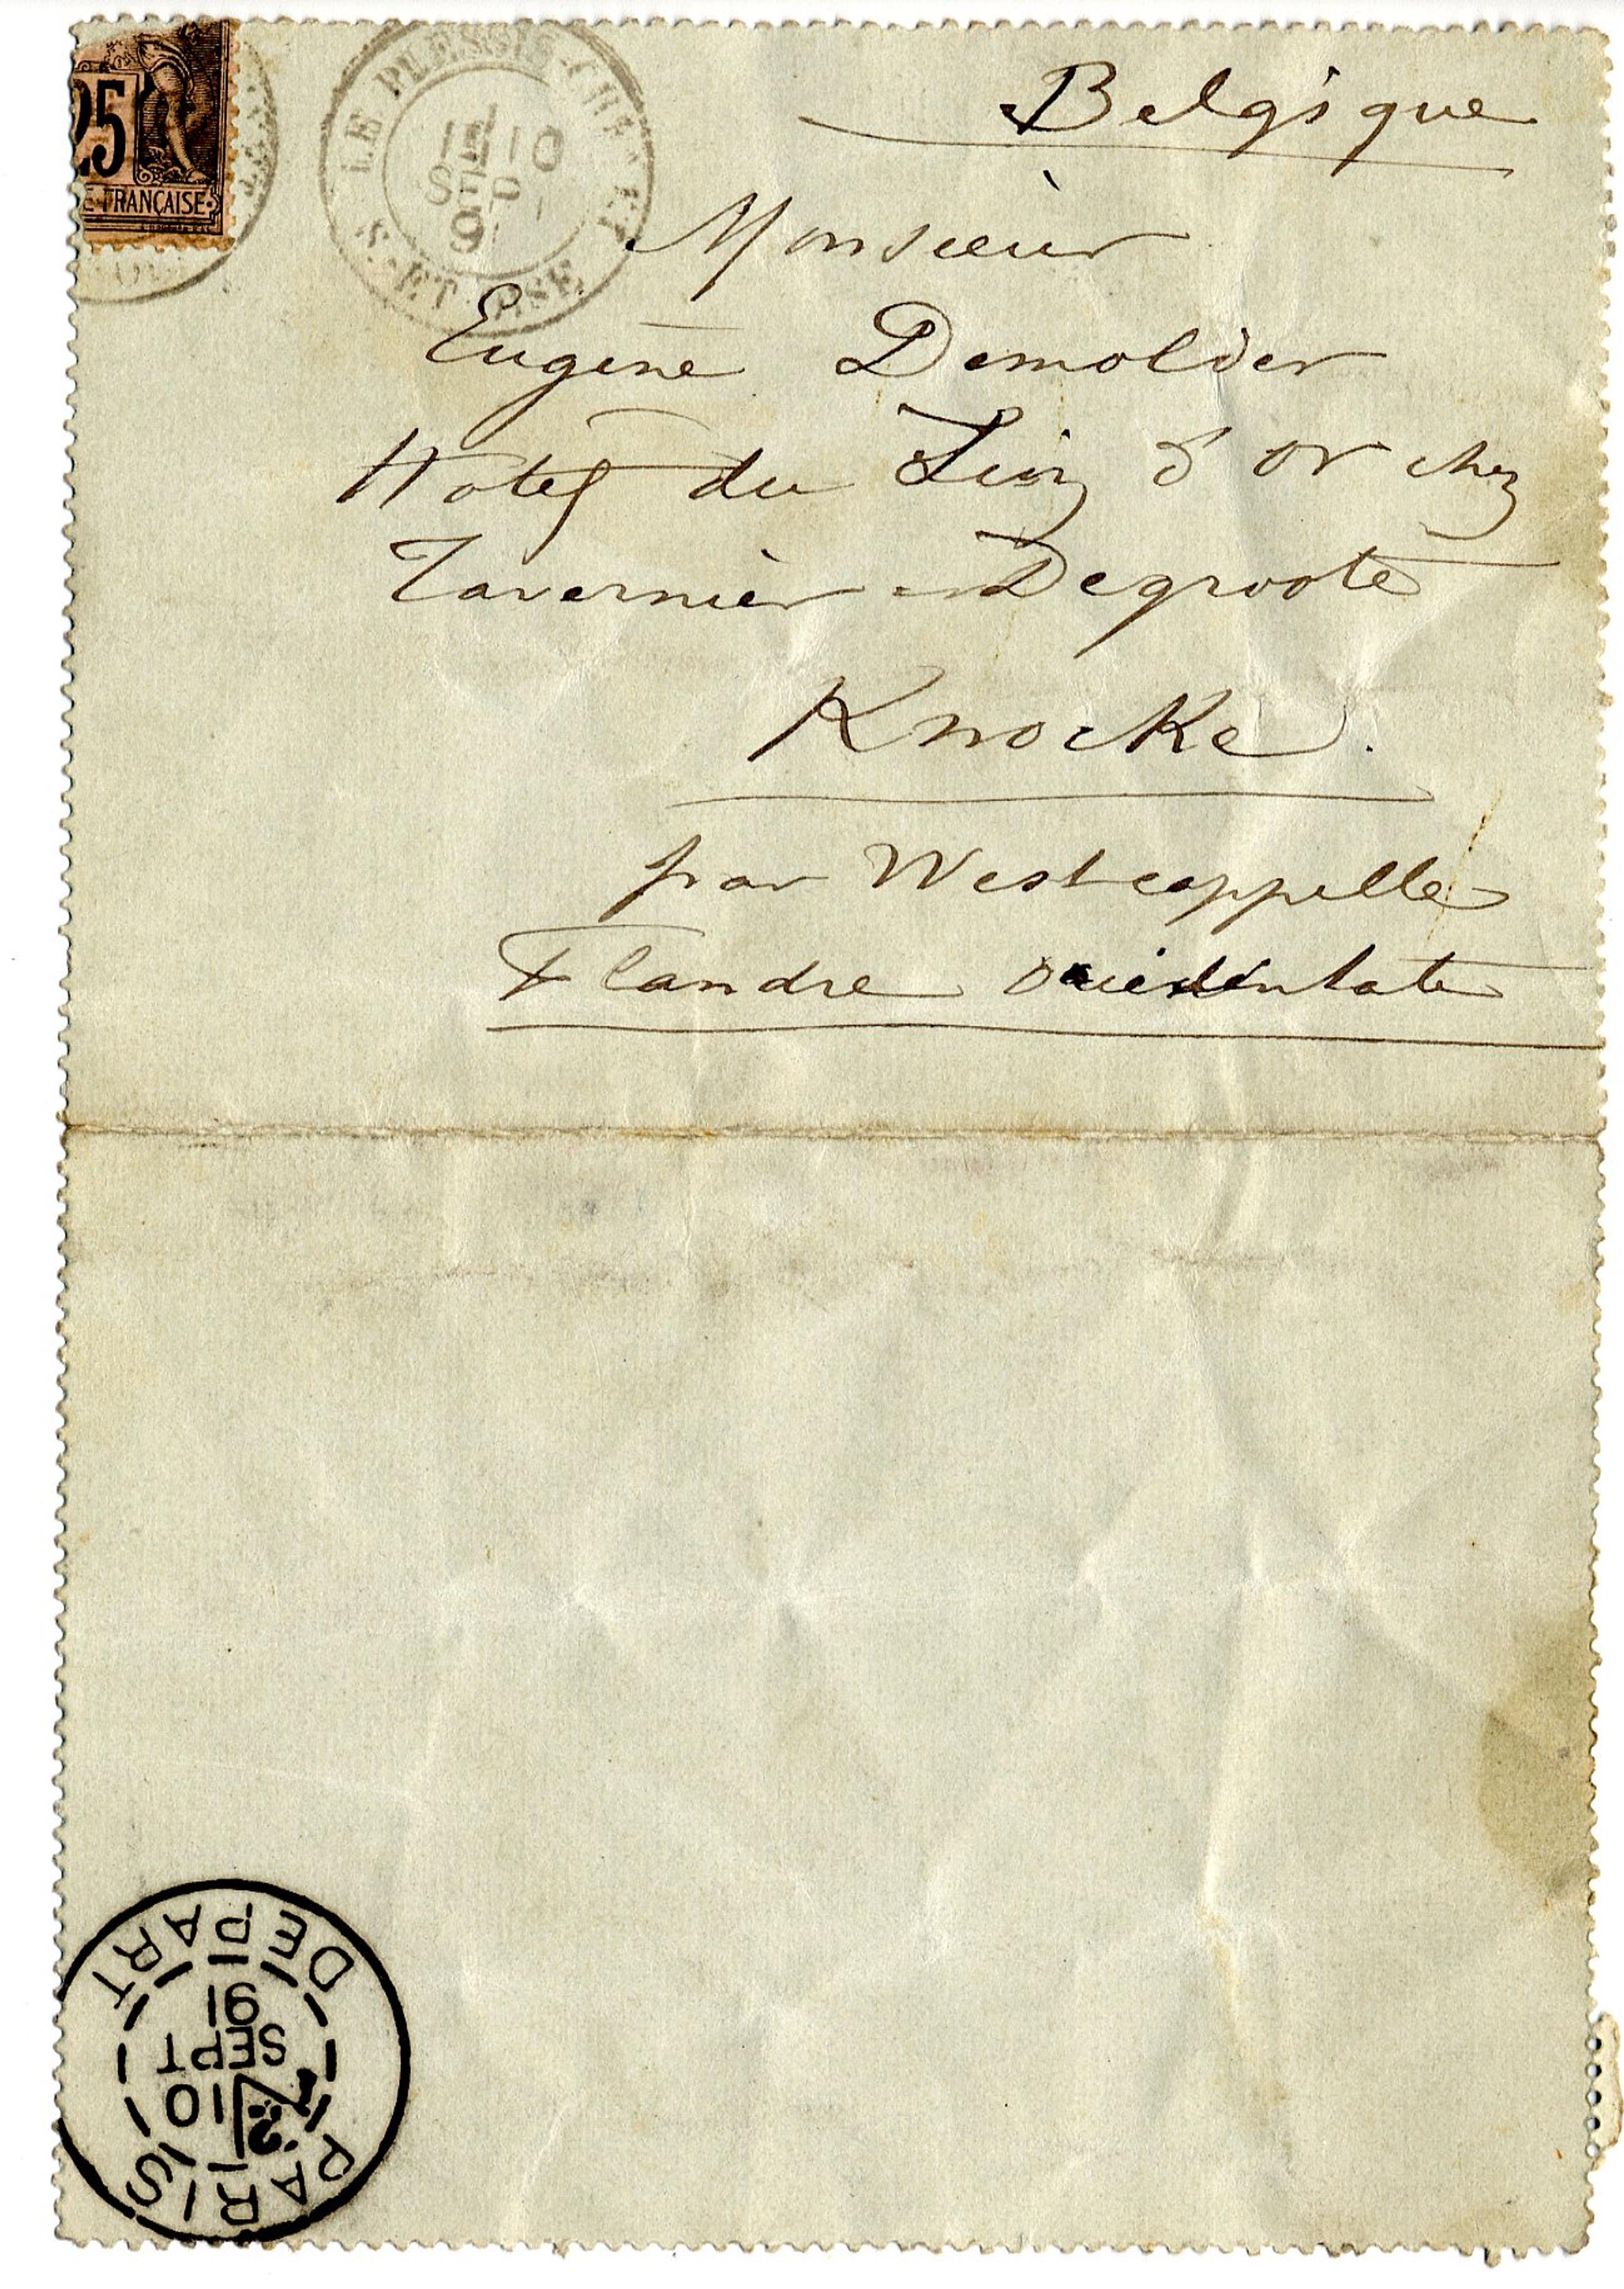 25
E FRANÇAISE
LE PLESSIS-CHENET
10
SEPT
91
S.-ET-OISE
Belgique
Monsieur
Eugène Demolder
Hotel du Lion d'or chez
Tavernier-Degroote
Knocke.
par Westcappelle
Flandre occidentale
DEPART
91
SEPT
10
PARIS